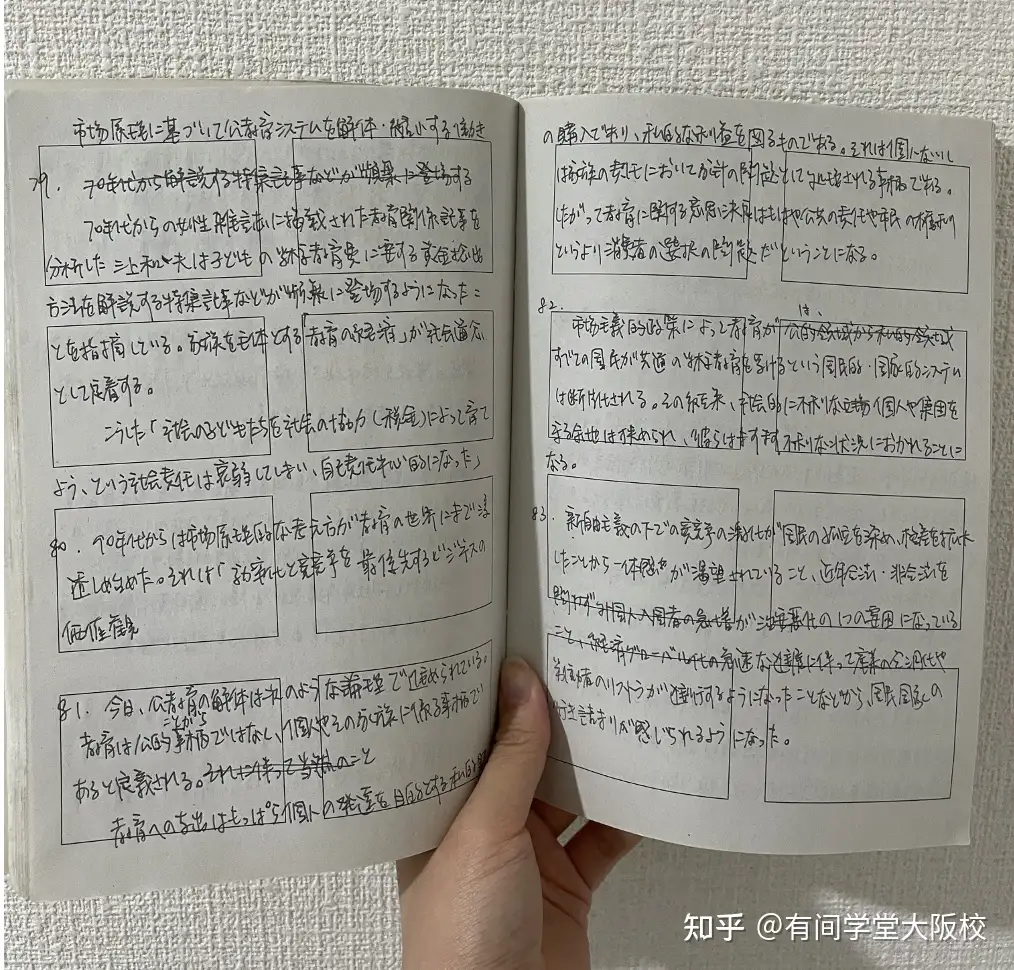 市場原理に基づいて公教育システムを解体・縮小する動き
79. 70年代から解説する特集記事などが頻繁に登場する
70年代からの女性雑誌に掲載された教育関係記事を
分析した三上和夫は子どもの学校教育費に要する資金捻出
方法を解説する特集記事などが頻繁に登場するようになったこ
とを指摘している。家族を主体とする「教育の経済」が社会通念
として定着する。
こうした「社会の子どもたちを社会の協力(税金)によって育て
よう、という社会責任は衰弱してしまい、自己責任中心的になった」
80. 90年代からは市場原理的な考え方が教育の世界にまで浸
透し始めた。それは「効率化と競争を最優先するビジネスの
価値観
81. 今日、公教育の解体は次のような論理で進められている。
教育は公的ことがら事柄ではなし、個人やその家族に係る事柄で
あると定義される。それに伴って当然のこと
教育への支出はもっぱら個人の発達を目的とする私的財
の購入であり、私的な利益を図るものである。それは個にないし
は家族の責任において方針の問題として処理される事柄である。
したがって教育に関する意思決定はもはや公共の責任や市民の権利
というより消費者の選択の問題だということになる。
82. 市場主義的政策によって教育が公的領域から私的領域
は、
すべての国民が共通の学校教育を受けるという国民的・国家的システム
は断片化される。その結果、社会的に不利な立場個人や集団を
守る余地は狭められ、彼らはますます不利な状況におかれることに
なる。
83. 新自由主義の下での競争の激化が国民の孤立を深め、格差を拡大
したことから一体感が渇望されていること、近年合法・非合法を
問わず外国人入国者の急増が治安悪化の1つの要因になっている
こと、経済グローバル化の急速な進展に伴って産業の空洞化や
労働者のリストラが進行するようになったことなどから、国民国家の
行き詰まりが感じられるようになった。
知乎 @有间学堂大阪校